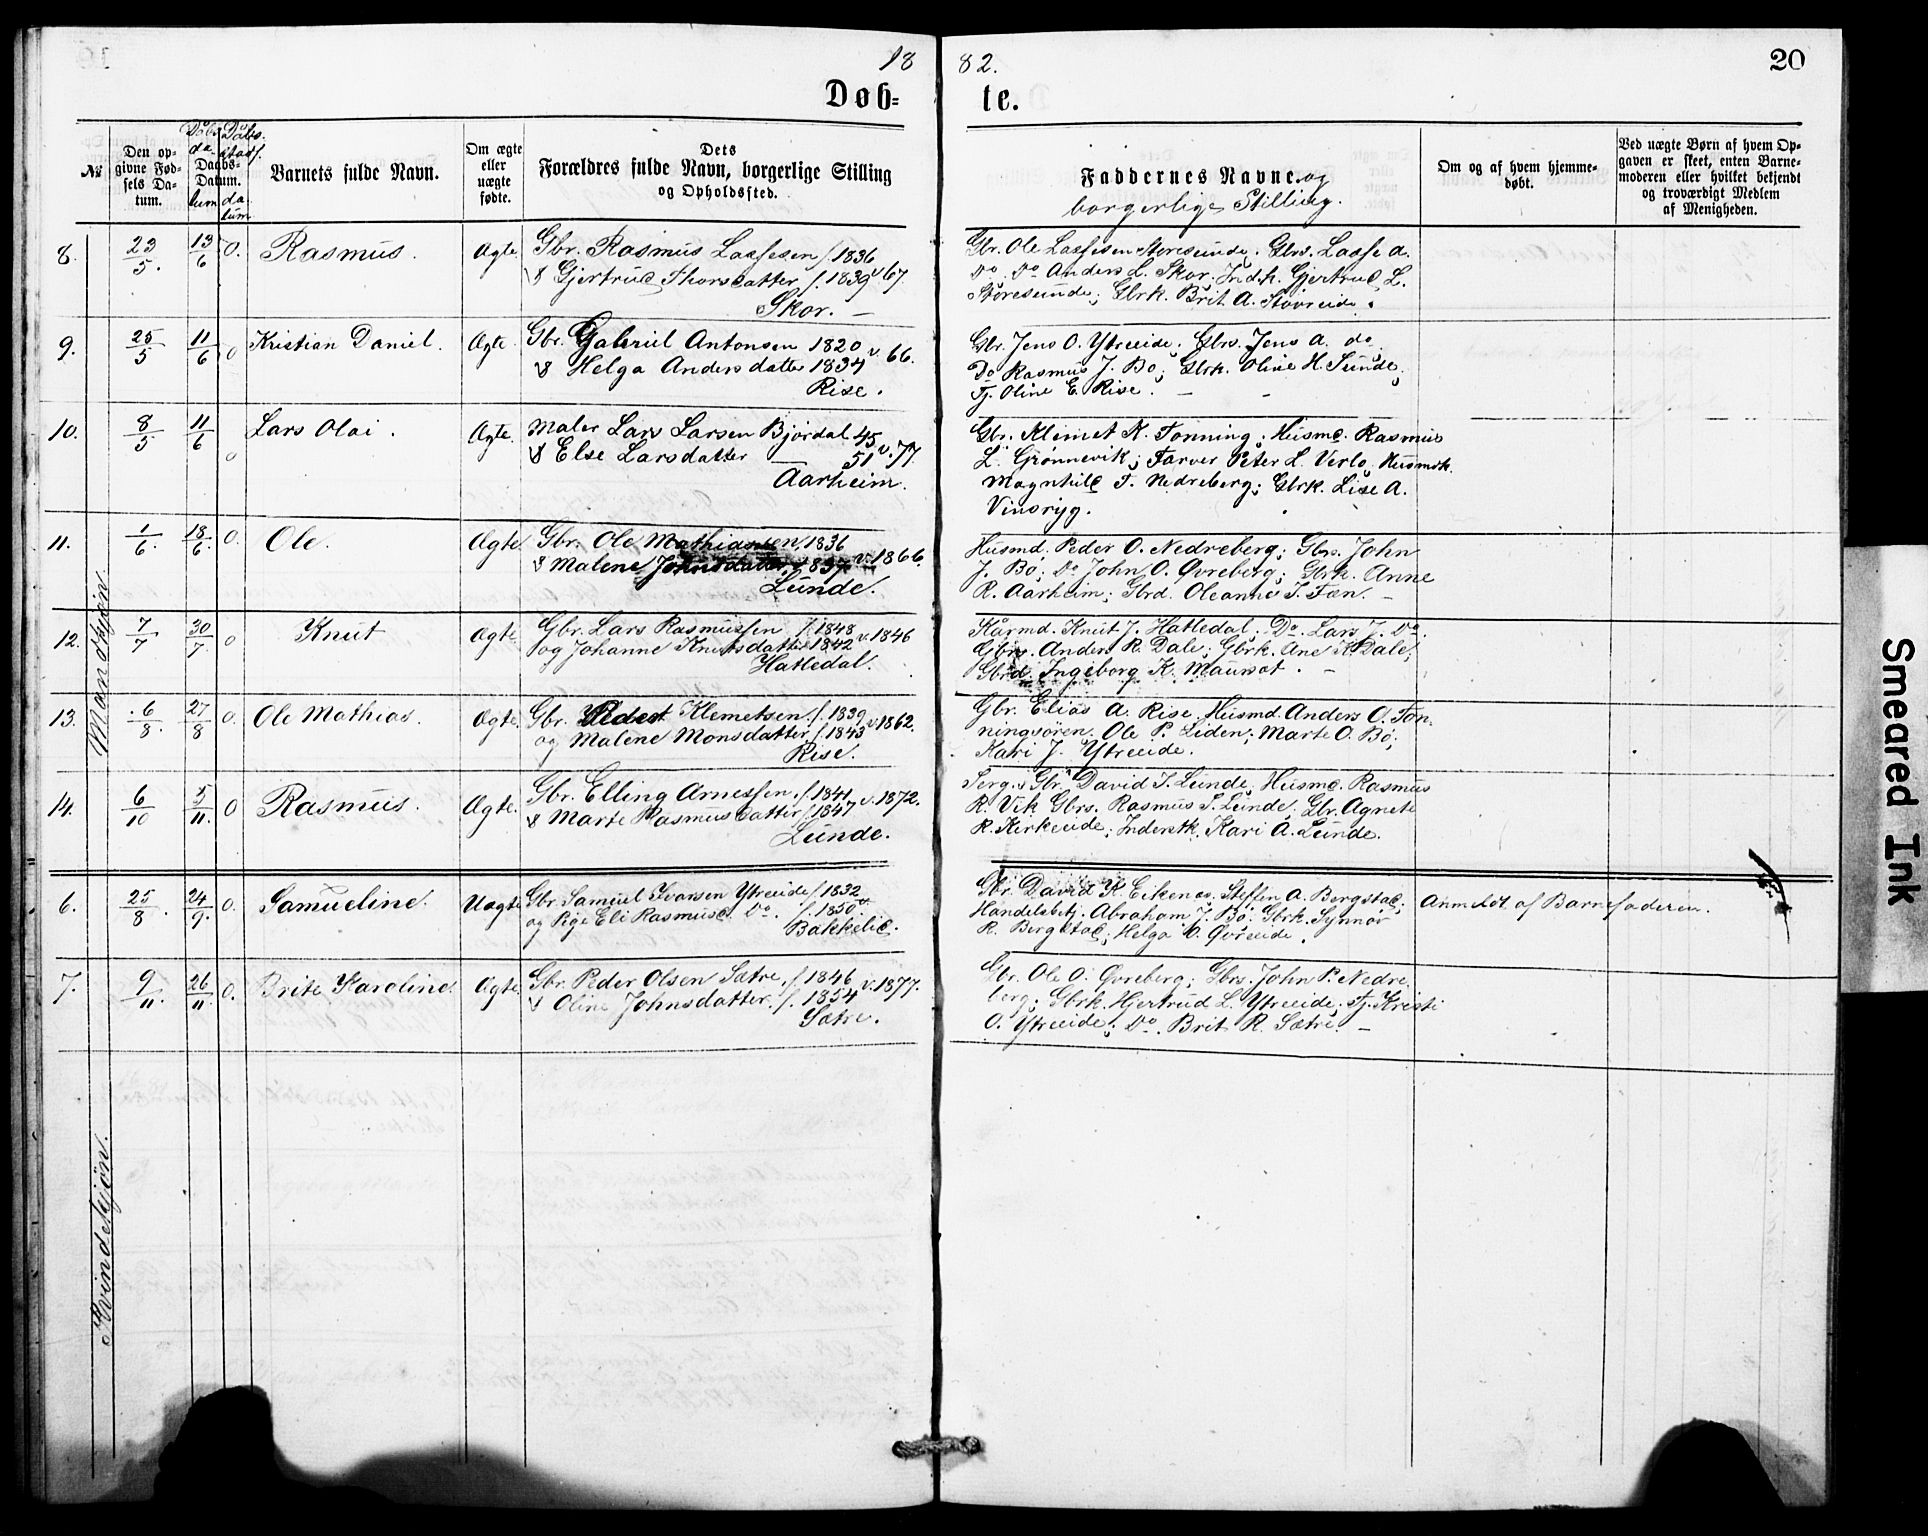 18 82. 20
Døb= te.
№ Den opgivne Fødsels Datum. Døbs da. Daabs-Datum. tum Døbs stad. datum Barnets fulde Navn. Om ægte eller uægte fødte. Dets Forældres fulde Navn, borgerlige Stilling og Opholdssted. Faddernes Navne og borgerlige Stilling. Om og af hvem hjemmedøbt. Ved uægte Børn af hvem Opgaven er skeet, enten Barnemoderen eller hvilket bekjendt og troværdigt Medlem af Menigheden.
Mandkjøn.
8. 23/5. 13/6 0. Rasmus. Ægte Gbr. Rasmus Lassesen f. 1836
& Gjertrud Thorsdatter f. 1839 v. 67.
Skor. —
Gbr. Ole Lassesen Storesunde; Gbrs. Lasse A.
Do. Do Anders L. Skor; Indk. Gjertrud L.
Storesunde; Gbrk. Brit A. Stavreide.
9. 25/5 11/6 0 Kristian Daniel. Ægte. Gbr. Gabriel Antonsen 1820 v. 66.
& Helga Andersdatter 1834
Rise.
Gbr. Jens O. Ytreeide; Gbrs. Jens A. do.
Do Rasmus J. Bø; Gbrk. Oline H. Sunde;
Tj. Oline E. Rise. —
10. 8/5 11/6 0 Lars Olai. Ægte. Maler Lars Larsen Bjørdal 45 v. 77.
& Else Larsdatter 51
Aarheim.
Gbr. Klemet K. Tonning; Husmd. Rasmus
L. Grønnevik; Farver Peter L. Verlo; Husmk.
Magnhild T. Nedreberg; Gbrk. Lise A.
Vinsryg.
11. 1/6. 18/6. 0. Ole. Ægte. Gbr. Ole Mathiassen 1836
& Malene Johnsdatter 1837 v. 1866.
Lunde.
Husmd. Peder O. Nedreberg; Gbrs. John
J. Bø; Do John O. Øvreberg; Gbrk. Anne
R. Aarheim; Gbrd. Oleanne J. Tæn. —
12. 7/7 30/7. 0 Knut Ægte. Gbr. Lars Rasmussen f. 1848
og Johanne Knutsdatter 1842 v. 1846
Hatledal.
Kaarmd. Knut J. Hatledal; Do. Lars J. Do.
Gbrs. Anders R. Dale; Gbrk. Ane K. Dale;
Gbrd. Ingeborg K. Maurset. —
13. 6/8. 27/8 0. Ole Mathias. Ægte. Gbr. Peder Klemetsen f. 1839 v. 1862.
og Malene Monsdatter f. 1843
Rise.
Gbr. Elias A. Rise; Husmd. Anders O. Ton-
ningsøren; Ole P. Liden; Marte O. Bø;
Kari J. Ytreeide.
14. 6/10 5/11. 0 Rasmus. Ægte. Gbr. Elling Arnessen f. 1841 v. 1872.
& Marte Rasmusdatter f. 1847
Lunde.
Serg. & Gbr. David J. Lunde; Husmd. Rasmus
R. Vik Gbrs. Rasmus S. Lunde; Gbr. Agnete
R. Kirkeeide; Inderstk. Kari A. Lunde.
Kvindekjøn.
6. 25/8. 24/9. 0. Samueline. Uægte Gbr. Samuel Ivarsen Ytreeide f. 1832
og Pige Eli Rasmusd. Do. f. 1850
Bakkelid.
Gbr. David K. Eikenes; Steffen A. Bergstad;
Handelsbetj. Abraham J. Bø; Gbrk. Synnøv
R. Bergstad; Helga O. Øvreeide.
Anmeldt af Barnefaderen.
7. 9/11. 26/11. 0. Brite Karoline. Ægte. Gbr. Peder Olsen Sætre f. 1846 v. 1877.
& Oline Johnsdatter f. 1854
Sætre.
Gbr. Ole O. Øvreberg; Gbrs. John P. Nedre-
berg; Gbrk. Gjertrud L. Ytreeide; Tj. Kristi
O. Ytreeide; Do. Brit R. Sætre. —
Smeared Ink